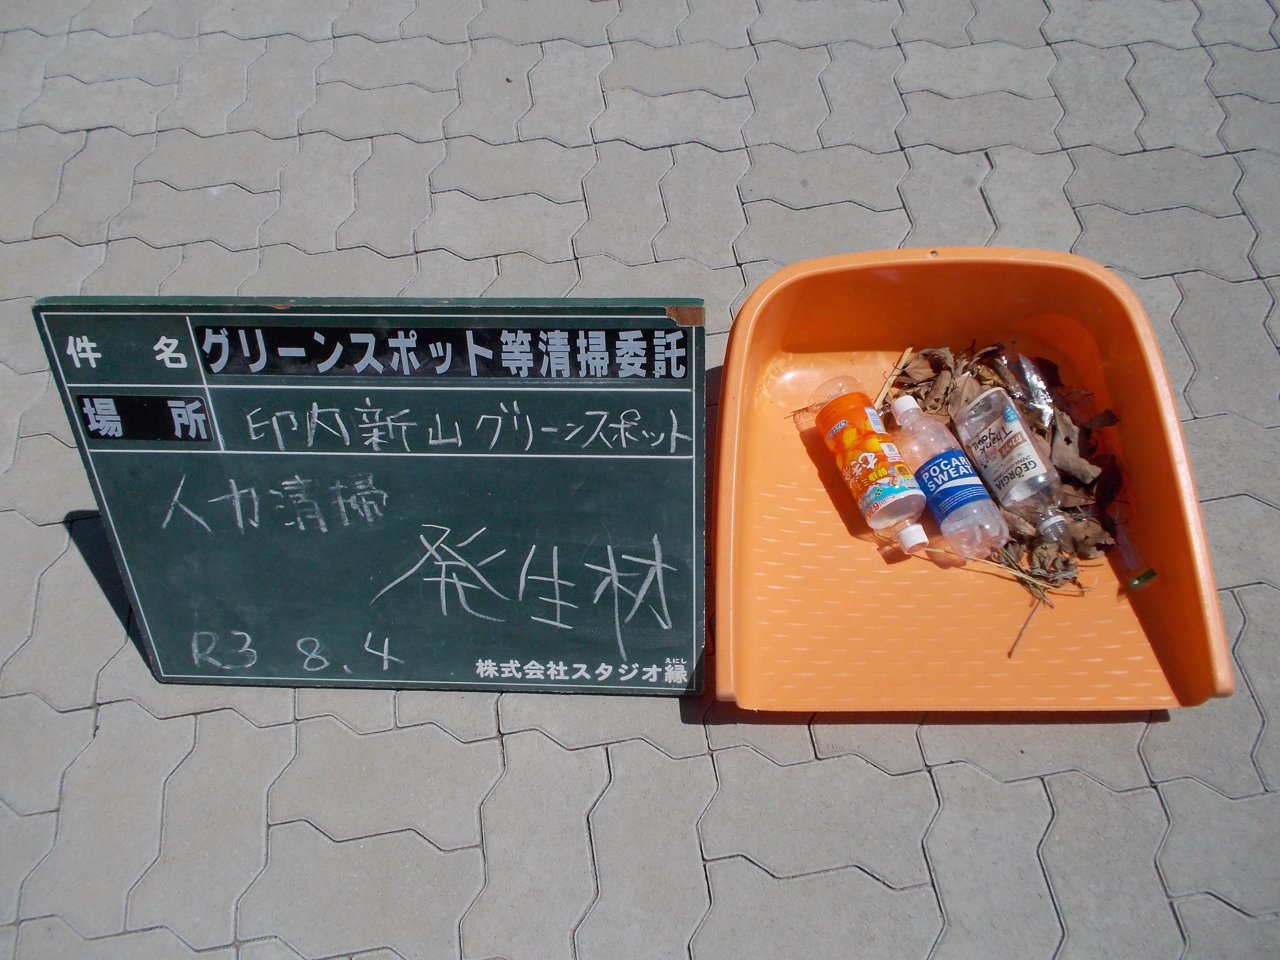 件名 グリーンスポット等清掃委託
場所 印内新山グリーンスポット
人力清掃
発生材
R3 8.4
株式会社スタジオ縁
えにし
POCARI
SWEAT
Thank you
GEORGIA